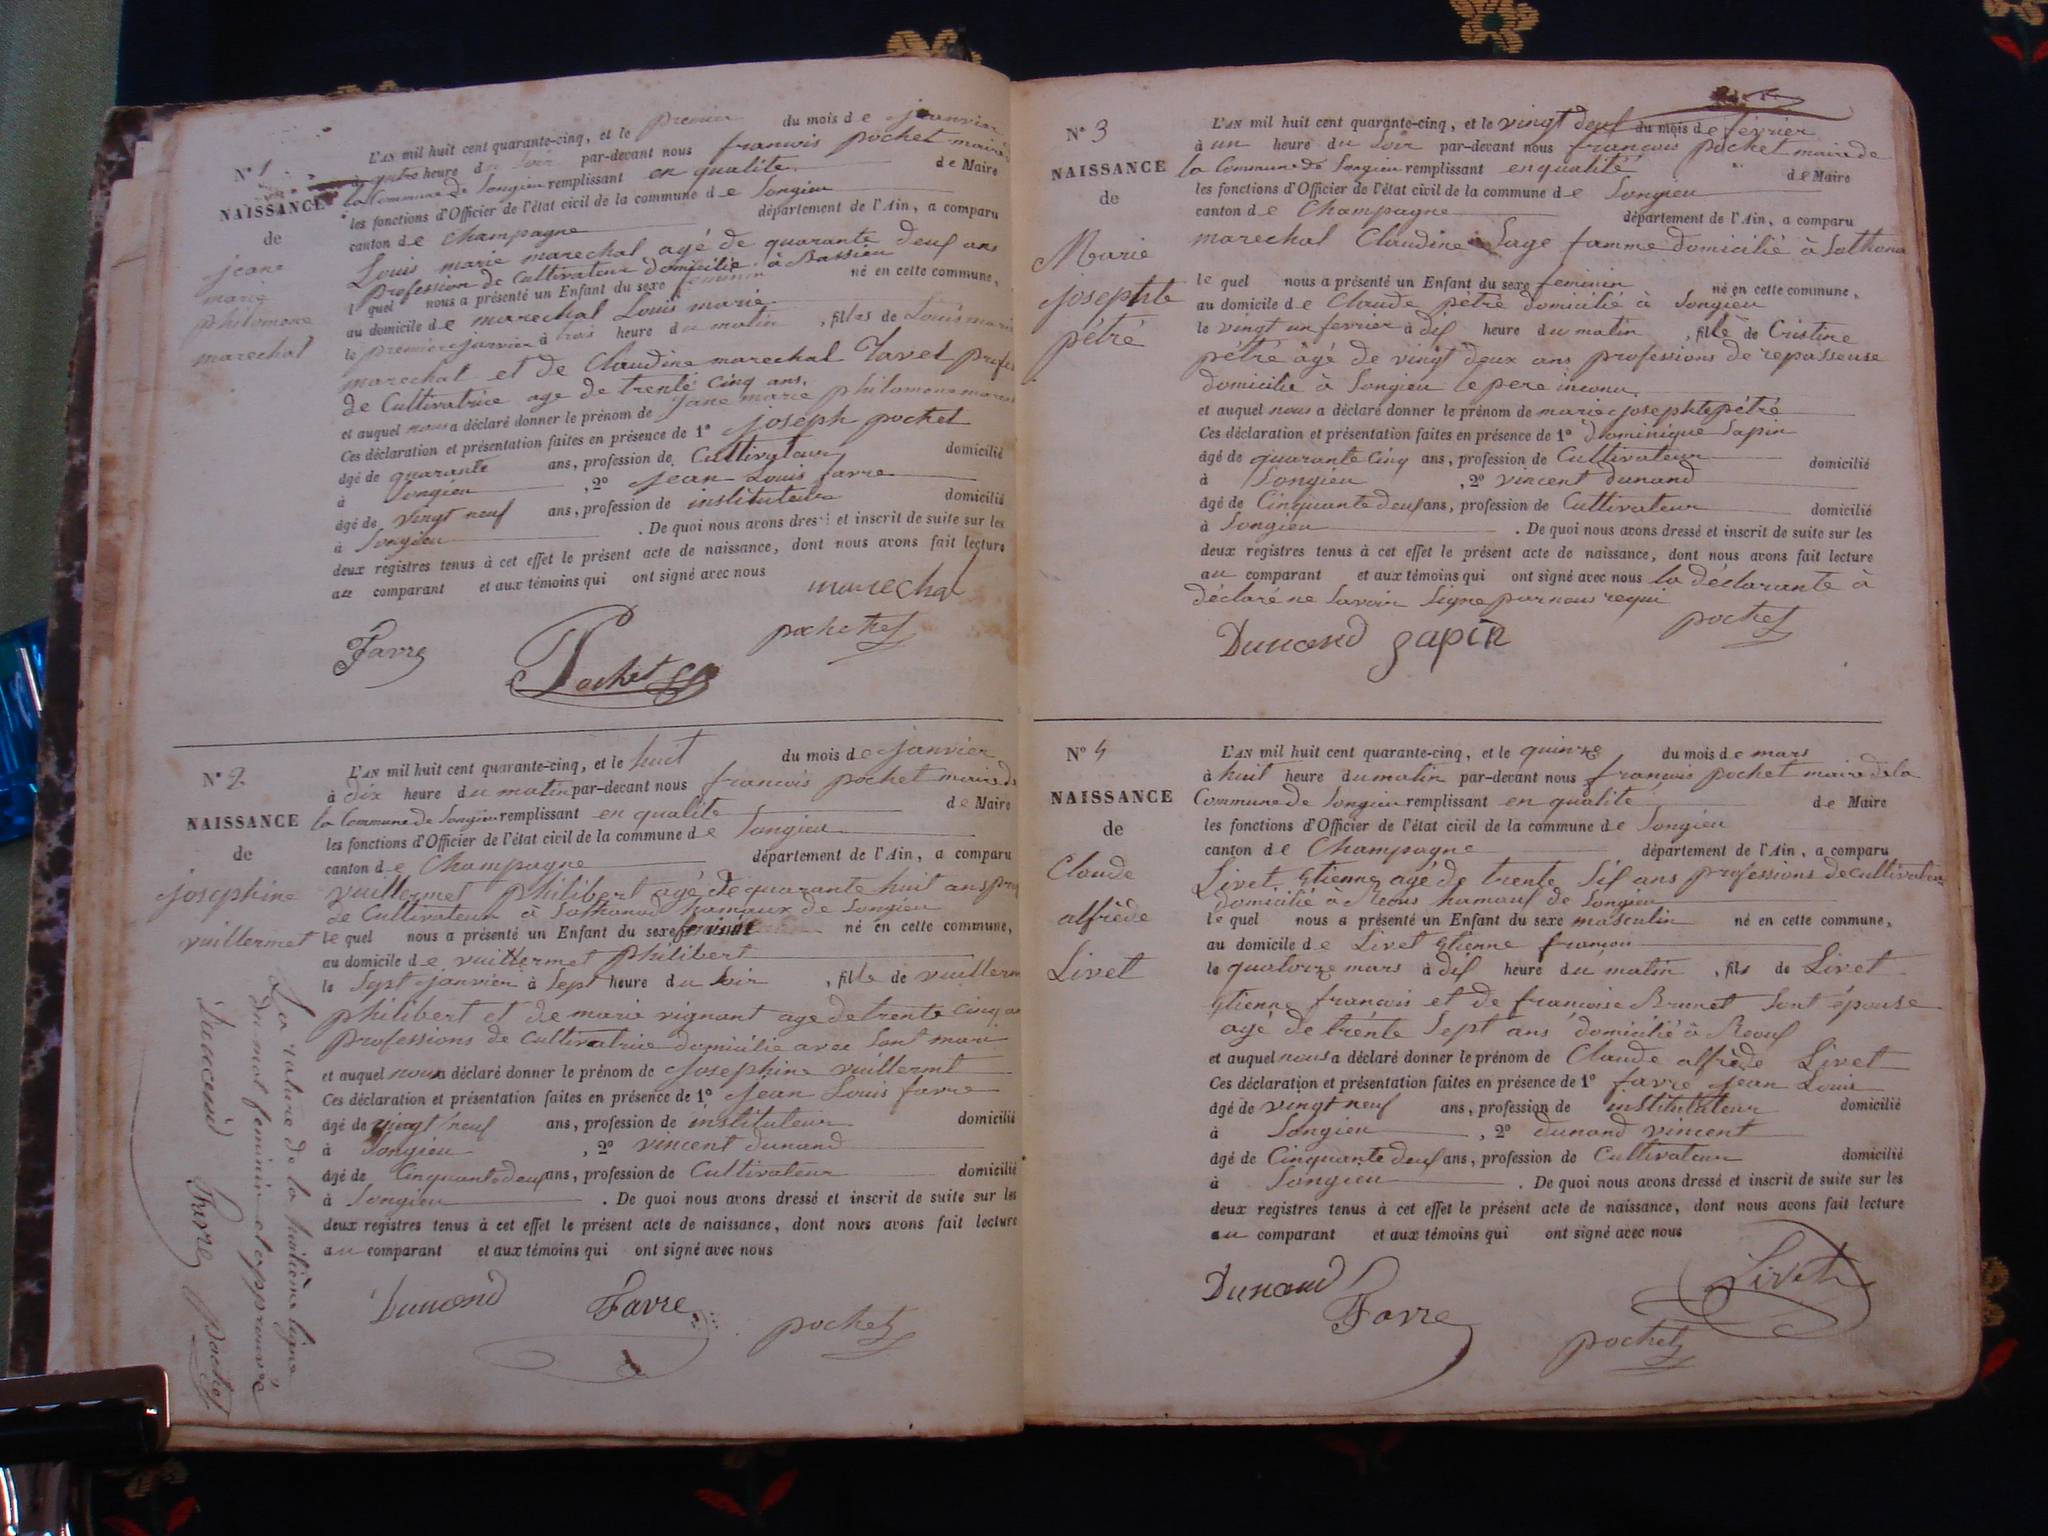 N° 1
NAISSANCE
de
jeane
marie
philomene
marechal
L'AN mil huit cent quarante-cinq, et le premier du mois de janvier
à heure du soir par-devant nous francois pochet maire de
la Commune de Songieu remplissant en qualité de Maire
les fonctions d'Officier de l'état civil de la commune de Songieu
canton de Champagne département de l'Ain, a comparu
Louis marie marechal agé de quarante deuf ans
profession de Cultivateur domicilié à Bassieu
l quel nous a présenté un Enfant du sexe feminin né en cette commune,
au domicile de marechal Louis marie
le premier janvier à trois heure du matin , filles de Louis marie
marechal et de Claudine marechal Tavel profes
de Cultivatrice age de trente Cinq ans.
et auquel nous a déclaré donner le prénom de jane marie philomene
Ces déclaration et présentation faites en présence de 1° joseph pochet
âgé de quarante ans, profession de Cultivateur domicilié
à Songieu , 2° jean Louis favre
âgé de vingt neuf ans, profession de instituteur domicilié
à Songieu . De quoi nous avons dressé et inscrit de suite sur les
deux registres tenus à cet effet le présent acte de naissance, dont nous avons fait lecture
au comparant et aux témoins qui ont signé avec nous
marechal
Favre Pochet pochet
N° 2
NAISSANCE
de
josephine
vuillermet
L'AN mil huit cent quarante-cinq, et le huit du mois de janvier
à dix heure du matin par-devant nous francois pochet maire de
la Commune de Songieu remplissant en qualité de Maire
les fonctions d'Officier de l'état civil de la commune de Songieu
canton de Champagne département de l'Ain, a comparu
vuillermet philibert agé de quarante huit ans prof
de Cultivateur à Sothonod hamaux de Songieu
le quel nous a présenté un Enfant du sexe né en cette commune,
au domicile de vuillermet philibert
le Sept janvier à Sept heure du soir , fille de vuillerm
philibert et de marie vignant age de trente Cinq an
professions de Cultivatrice domicilié avec Sont mari
et auquel nous a déclaré donner le prénom de josephine vuillermt
Ces déclaration et présentation faites en présence de 1° jean Louis favre
âgé de vingt neuf ans, profession de instituteur domicilié
à Songieu , 2° vincent dunand
âgé de Cinquante deuf ans, profession de Cultivateur domicilié
à Songieu . De quoi nous avons dressé et inscrit de suite sur les
deux registres tenus à cet effet le présent acte de naissance, dont nous avons fait lecture
au comparant et aux témoins qui ont signé avec nous
Dunand Favre pochet
La rature de la huitième ligne
du mot feminin et approuvée
Dunand Favre pochet
N° 3
NAISSANCE
de
Marie
josephte
pétré
L'AN mil huit cent quarante-cinq, et le vingt deuf du mois de fevrier
à un heure du Soir par-devant nous francois pochet maire de
la Commune de Songieu remplissant en qualité de Maire
les fonctions d'Officier de l'état civil de la commune de Songieu
canton de Champagne département de l'Ain, a comparu
marechal Claudine Sage famme domicilié à Sothona
le quel nous a présenté un Enfant du sexe feminin né en cette commune,
au domicile de Claude pétré domicilié à Songieu
le vingt un fevrier à dif heure du matin , fille de Cristine
pétré âgé de vingt deux ans professions de repasseuse
domicilié à Songieu le pere inconu
et auquel nous a déclaré donner le prénom de marie josephte pétré
Ces déclaration et présentation faites en présence de 1° dominique Sapin
âgé de quarante Cinq ans, profession de Cultivateur domicilié
à Songieu , 2° vincent dunand
âgé de Cinquante deuf ans, profession de Cultivateur domicilié
à Songieu . De quoi nous avons dressé et inscrit de suite sur les
deux registres tenus à cet effet le présent acte de naissance, dont nous avons fait lecture
au comparant et aux témoins qui ont signé avec nous la déclarante à
déclaré ne Savoir Signe par nous requi
Dunand Zapin pochet
N° 4
NAISSANCE
de
Claude
alfrède
Livet
L'AN mil huit cent quarante-cinq, et le quinze du mois de mars
à huit heure du matin par-devant nous francois pochet maire de la
Commune de Songieu remplissant en qualité de Maire
les fonctions d'Officier de l'état civil de la commune de Songieu
canton de Champagne département de l'Ain, a comparu
Livet Etienne agé de trente Sif ans professions de cultivateur
domicilié à hamauf de Songieu
le quel nous a présenté un Enfant du sexe masculin né en cette commune,
au domicile de Livet Etienne francois
le quatorze mars à dif heure du matin , fils de Livet
Etienne francois et de francoise Brunet Sont épouse
agé de trente Sept ans domicilié à
et auquel nous a déclaré donner le prénom de Claude alfrède Livet
Ces déclaration et présentation faites en présence de 1° favre jean Louis
âgé de vingt neuf ans, profession de instituteur domicilié
à Songieu , 2° dunand vincent
âgé de Cinquante deuf ans, profession de Cultivateur domicilié
à Songieu . De quoi nous avons dressé et inscrit de suite sur les
deux registres tenus à cet effet le présent acte de naissance, dont nous avons fait lecture
au comparant et aux témoins qui ont signé avec nous
Dunand Favre Livet
pochet